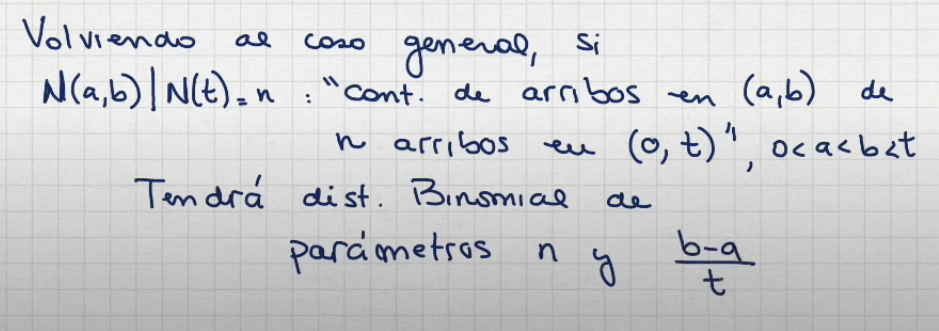 Volviendo al caso general, si
N(a,b)|N(t)=n : "cant. de arribos en (a,b) de
n arribos en (0,t)", 0<a<b<t
Tendrá dist. Binomial de
parámetros n y \frac{b-a}{t}